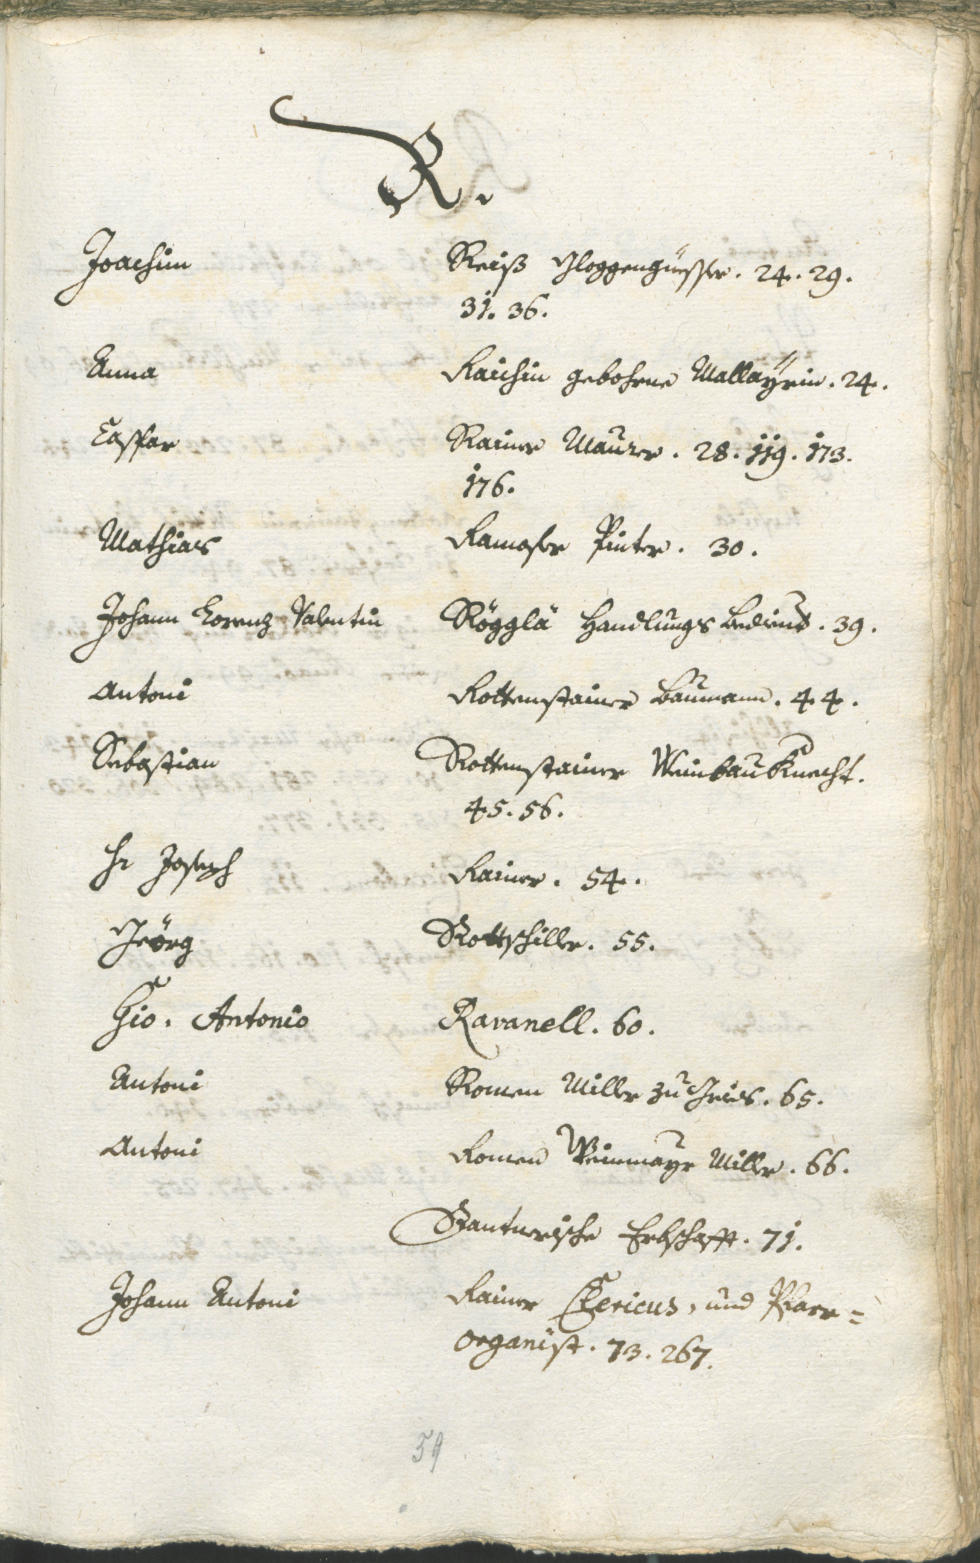 R.
Joachim Reiß Gloggengüesser. 24. 29.
31. 36.
Anna Raichin gebohrne Mallaÿrin. 24.
Caspar Rainer Maurer. 28. 119. 173.
176.
Mathias Ramoser Pinter. 30.
Johann Lorenz Valentin Rögglä Handlungs Bedient. 39.
Antoni Rottenstainer Baumann. 44.
Sebastian Rottenstainer Weinbau Knecht.
45. 56.
Hr Joseph Rainer. 54.
Georg Rottschiller. 55.
Gio. Antonio Ravanell. 60.
Antoni Romen Miller zu Gries. 65.
Antoni Romen Weinmayr Miller. 66.
Erbschafft. 71.
Johann Antoni Rainer Clericus, und Pfarr=
organist. 73. 267.
59